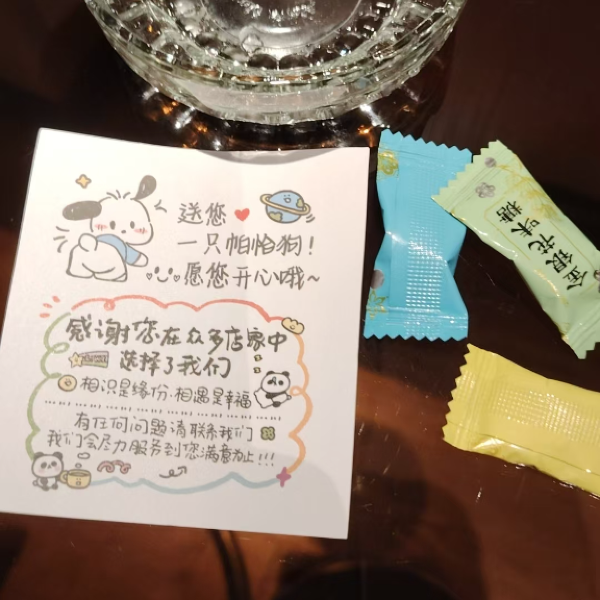 送您
一只帕怕狗！
愿您开心哦~
感谢您在众多店家中
选择了我们
相识是缘份.相遇是幸福
有任何问题请联系我们
我们会尽力服务到您满意为止!!!
金银花味糖